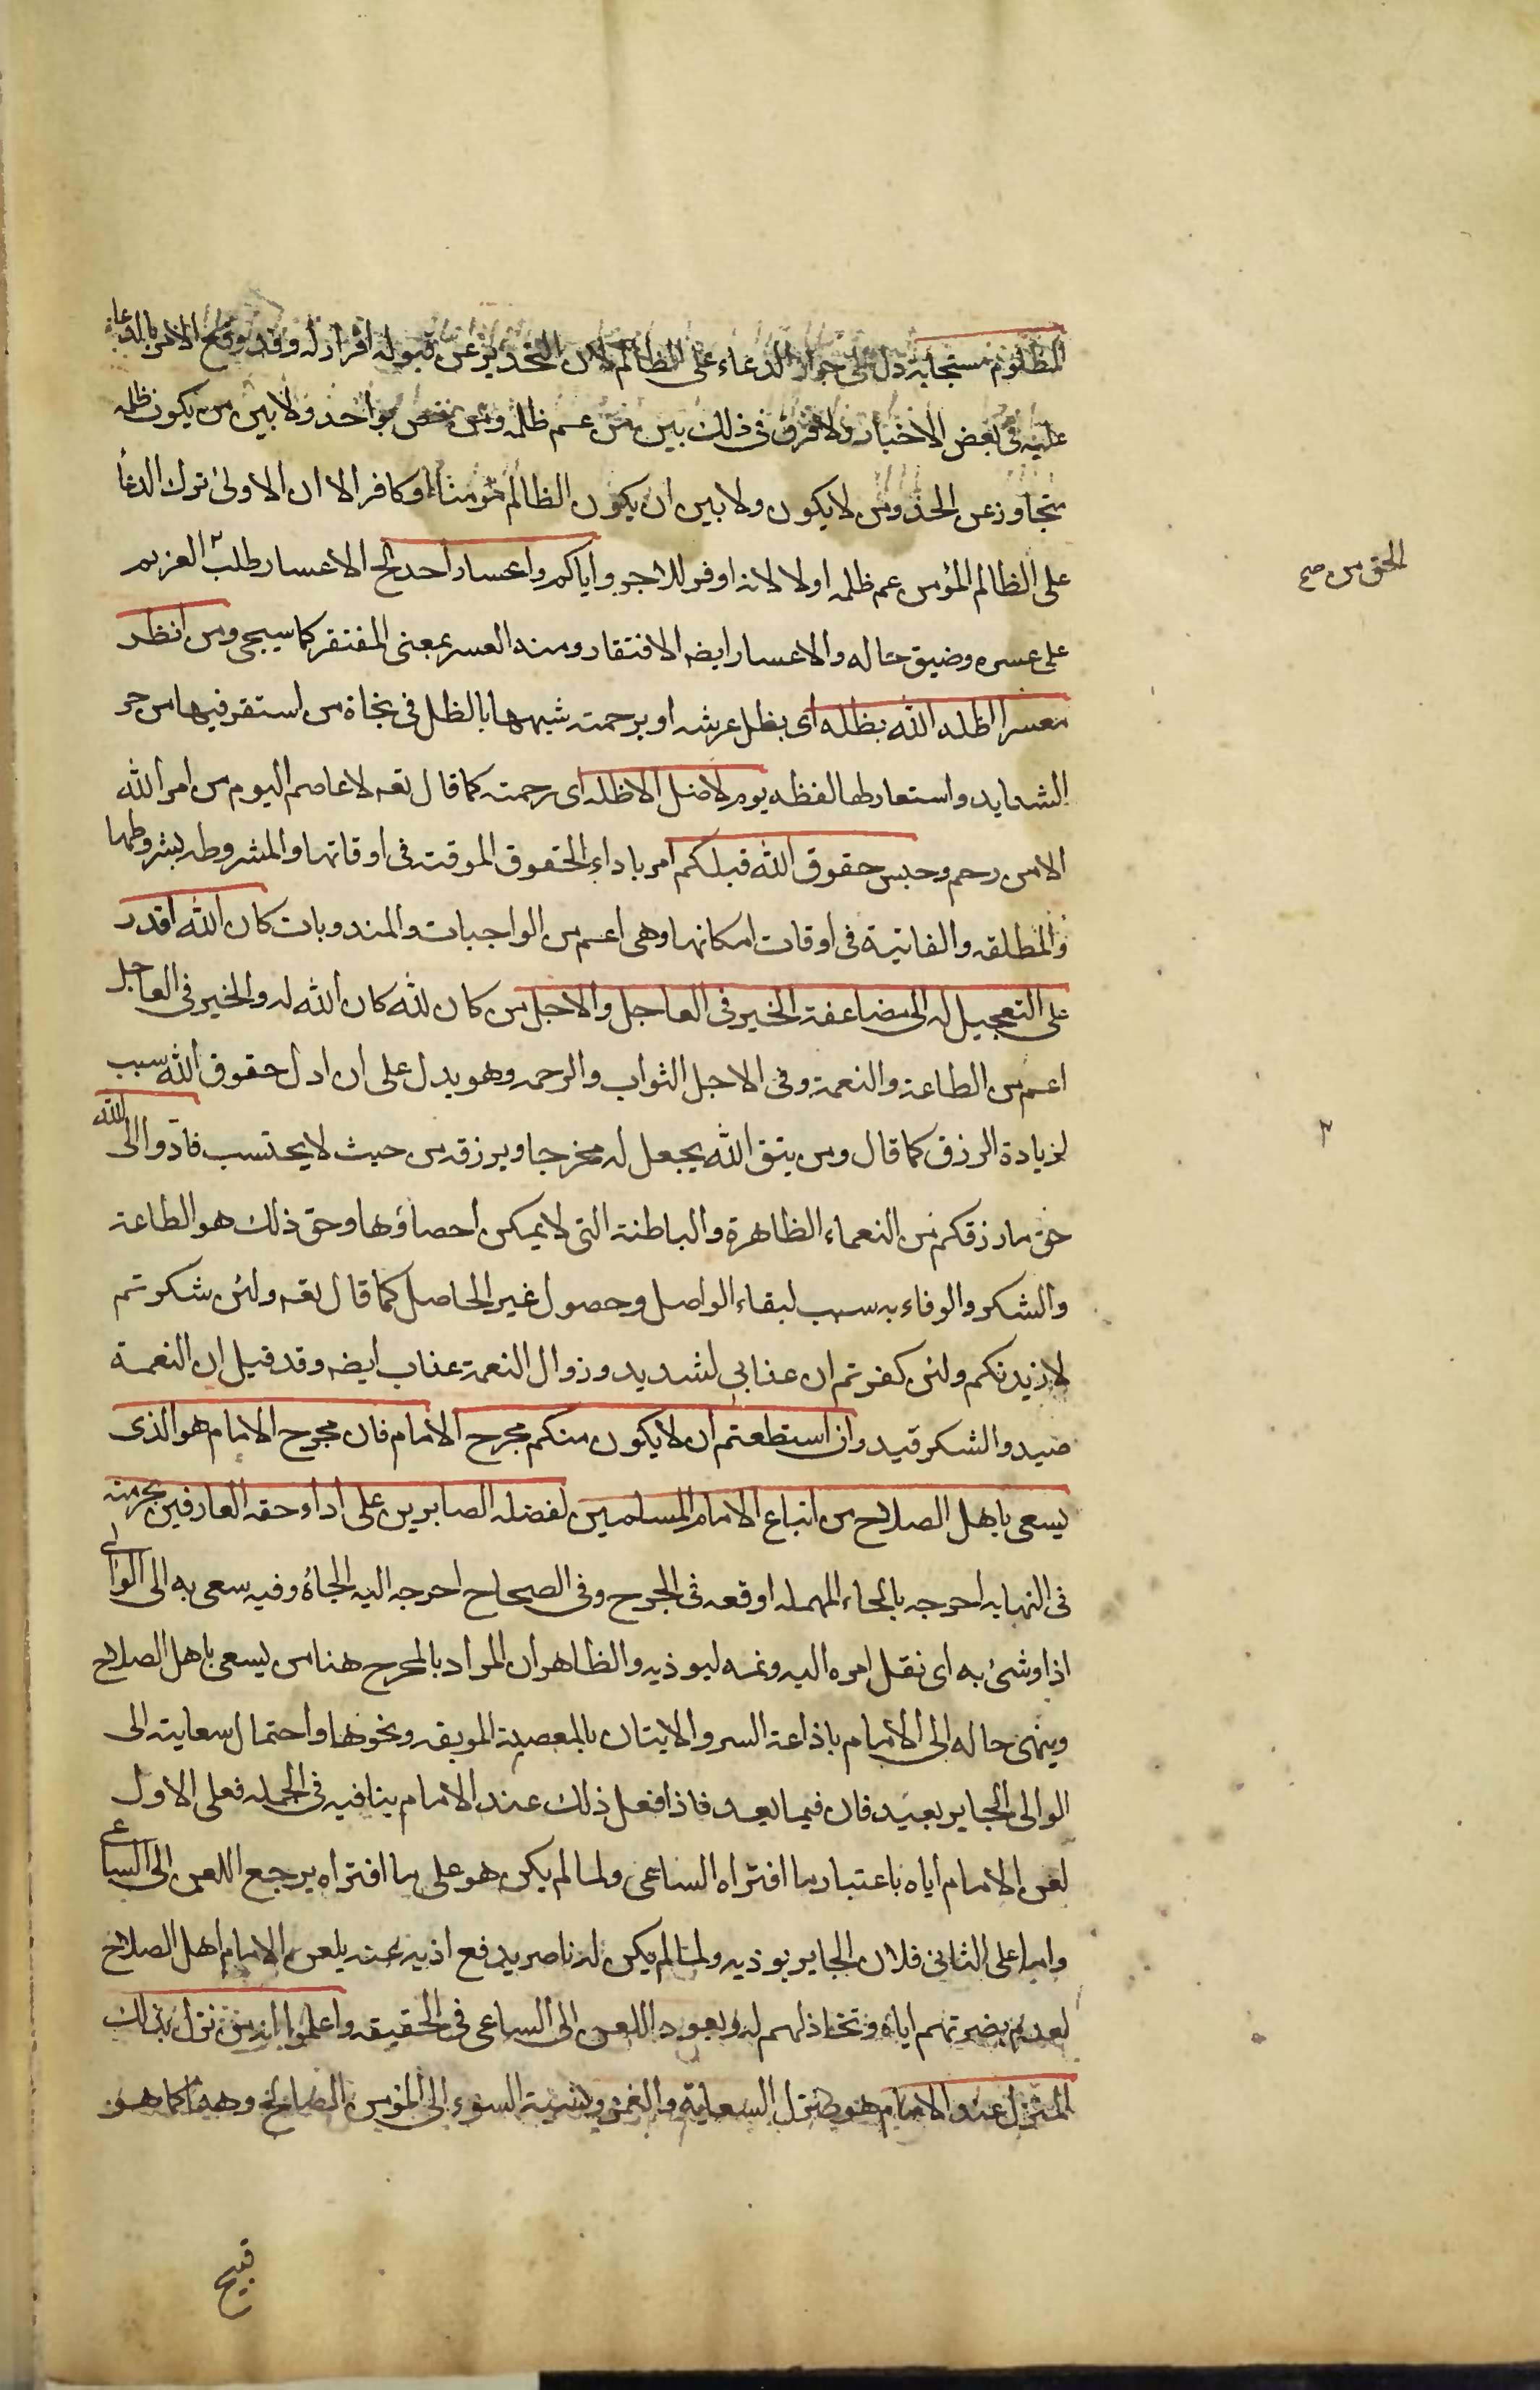 المظلوم مستجابة دل على جواز الدعاء على الظالم لان التحذير عن قبوله اقرار له وقد وقع الامر بالدعاء
عليه فى بعض الاخبار ولا فرق فى ذلك بين من عم ظلمه ومن خص بواحد ولا بين من يكون ظلمه
متجاوز عن الحد ومن لا يكون ولا بين ان يكون الظالم مؤمنا او كافر الا ان الاولى ترك الدعأ
على الظالم المؤمن عم ظلمه اولا لانه اوفر للاجر واياكم واعسار احد الخ الاعسار طلب ٢ الغريم
الحق من صح
على عسره وضيق حاله والاعسار ايضه الافتقار ومنه العسر بمعنى المفتقر كما سيجى ومن انظر
معسرا اظله الله بظله اى بظل عرشه او برحمته شبهها بالظل فى نجاة من استقر فيها من حر
الشدايد واستعار لها لفظه يوم لا ضل الا ظله اى رحمته كما قال تعه لا عاصم اليوم من امر الله
الا من رحم وحبس حقوق الله قبلكم امر باداء الحقوق الموقته فى اوقاتها والمشروطه بشروطها
والمطلقه والفايتة فى اوقات امكانها وهى اعم من الواجبات والمندوبات كان الله اقدر
على التعجيل له الى مضاعفة الخير فى العاجل والاجل من كان لله كان الله له والخير فى العاجل
اعم من الطاعة والنعمة وفى الاجل الثواب والرحمه وهو يدل على ان ادل حقوق الله سبب
لزيادة الرزق كما قال ومن يتق الله يجعل له مخرجا ويرزقه من حيث لا يحتسب فادوا الى الله
٢
حق ما رزقكم من النعماء الظاهرة والباطنة التى لا يمكن احصاؤها وحق ذلك هو الطاعة
والشكر والوفاء به سبب لبقاء الواصل وحصول غير الحاصل كما قال تعه ولئن شكرتم
لازيدنكم ولئن كفرتم ان عذابى لشديد وزوال النعمة عذاب ايضه وقد قيل ان النعمة
صيد والشكر قيد وان استطعتم ان لا يكون منكم محرج الامام فان محرج الامام هو الذى
يسعى باهل الصلاح من اتباع الامام المسلمين لفضله الصابرين على اداء حقه العارفين بحرمته
فى النهايه احرجه بالحاء المهمله اوقعه فى الحرج وفى الصحاح احرجه اليه الجأه وفيه سعى به الى الوالى
اذا وشئ به اى نقل امره اليه ونمه ليوذيه والظاهر ان المراد بالمحرج هنا من يسعى باهل الصلاح
وينهى حاله الى الامام باذاعة السر والايتان بالمعصية الموبقه ونحوها واحتمال سعايته الى
الوالى الجاير بعيد فان فيما بعد فاذا فعل ذلك عند الامام ينافيه فى الجمله فعلى الاول
لعن الامام اياه باعتبار ما افتراه الساعى ولما لم يكن هو على ما افتراه يرجع اللعن الى الساعى
واما على الثانى فلان الجاير يوذيه ولما لم يكن له ناصر يدفع اذيه عنه يلعن الامام اهل الصلاح
لعدم نصرتهم اياه وتخاذلهم له ويعود اللعن الى الساعى فى الحقيقه واعلموا انه من نزل بذلك
المنزل عند الامام هو منزل السعاية والغمز ونسبة السوء الى المؤمن الصالح وهذا كما هو
قبيح